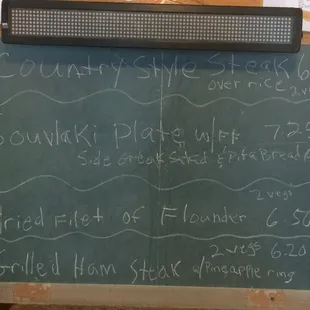 Country Style Steak 6
over rice 2.v
Souvlaki Plate w/FF 7.25
Side Greek Salad & Pita Bread
2 vegs
Fried Filet of Flounder 6.50
2 vegs 6.20
Grilled Ham Steak w/Pineapple ring